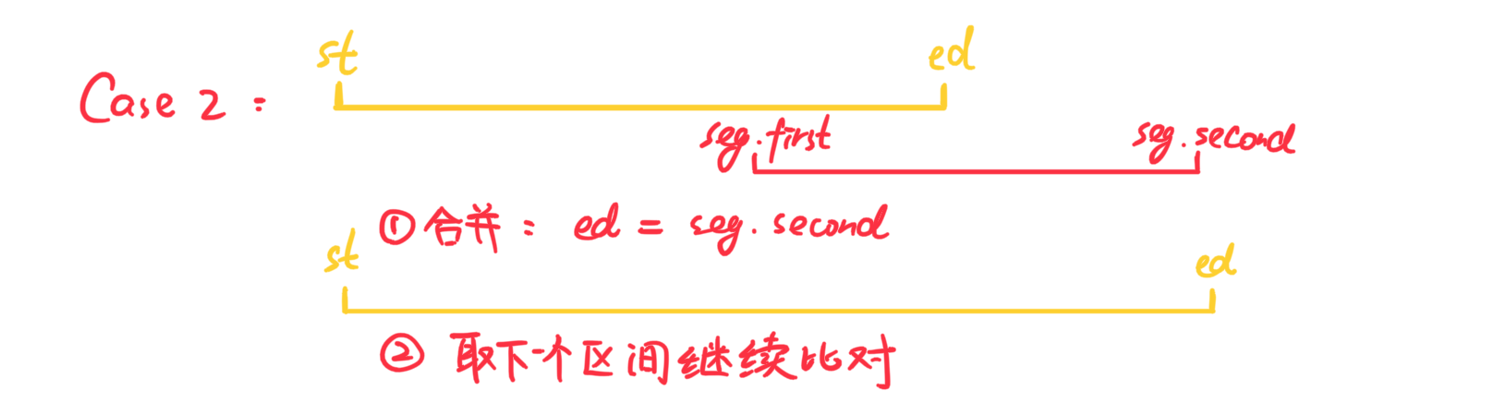 st ed
Case 2:
seg.first seg.second
①合并: ed = seg.second
st ed
② 取下一个区间继续比对